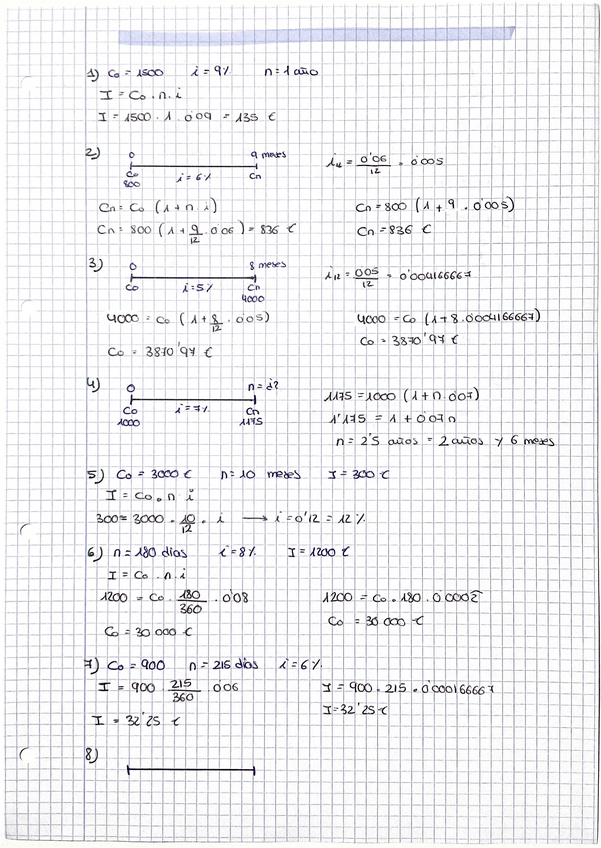 1) Co = 1500 i = 9% n = 1 año
I = Co . n . i
I = 1500 . 1 . 0'09 = 135 €
2) 0 9 meses
Co i = 6% Cn
800
i₁₂ = 0'06/12 = 0'005
Cn = Co (1 + n . i) Cn = 800 (1 + 9 . 0'005)
Cn = 800 (1 + 9/12 . 0'06) = 836 € Cn = 836 €
3) 0 8 meses
Co i = 5% Cn
4000
i₁₂ = 0'05/12 = 0'004166667
4000 = Co (1 + 8/12 . 0'05) 4000 = Co (1 + 8 . 0'004166667)
Co = 3870'97 € Co = 3870'97 €
4) 0 n = ¿?
Co i = 7% Cn
1000 1175
1175 = 1000 (1 + n . 0'07)
1'175 = 1 + 0'07 n
n = 2'5 años = 2 años y 6 meses
5) Co = 3000 € n = 10 meses I = 300 €
I = Co . n . i
300 = 3000 . 10/12 . i → i = 0'12 = 12%
6) n = 180 días i = 8% I = 1200 €
I = Co . n . i
1200 = Co . 180/360 . 0'08 1200 = Co . 180 . 0'0002̂
Co = 30 000 € Co = 30 000 €
7) Co = 900 n = 215 días i = 6%
I = 900 . 215/360 . 0'06 I = 900 . 215 . 0'000166667
I = 32'25 € I = 32'25 €
8)